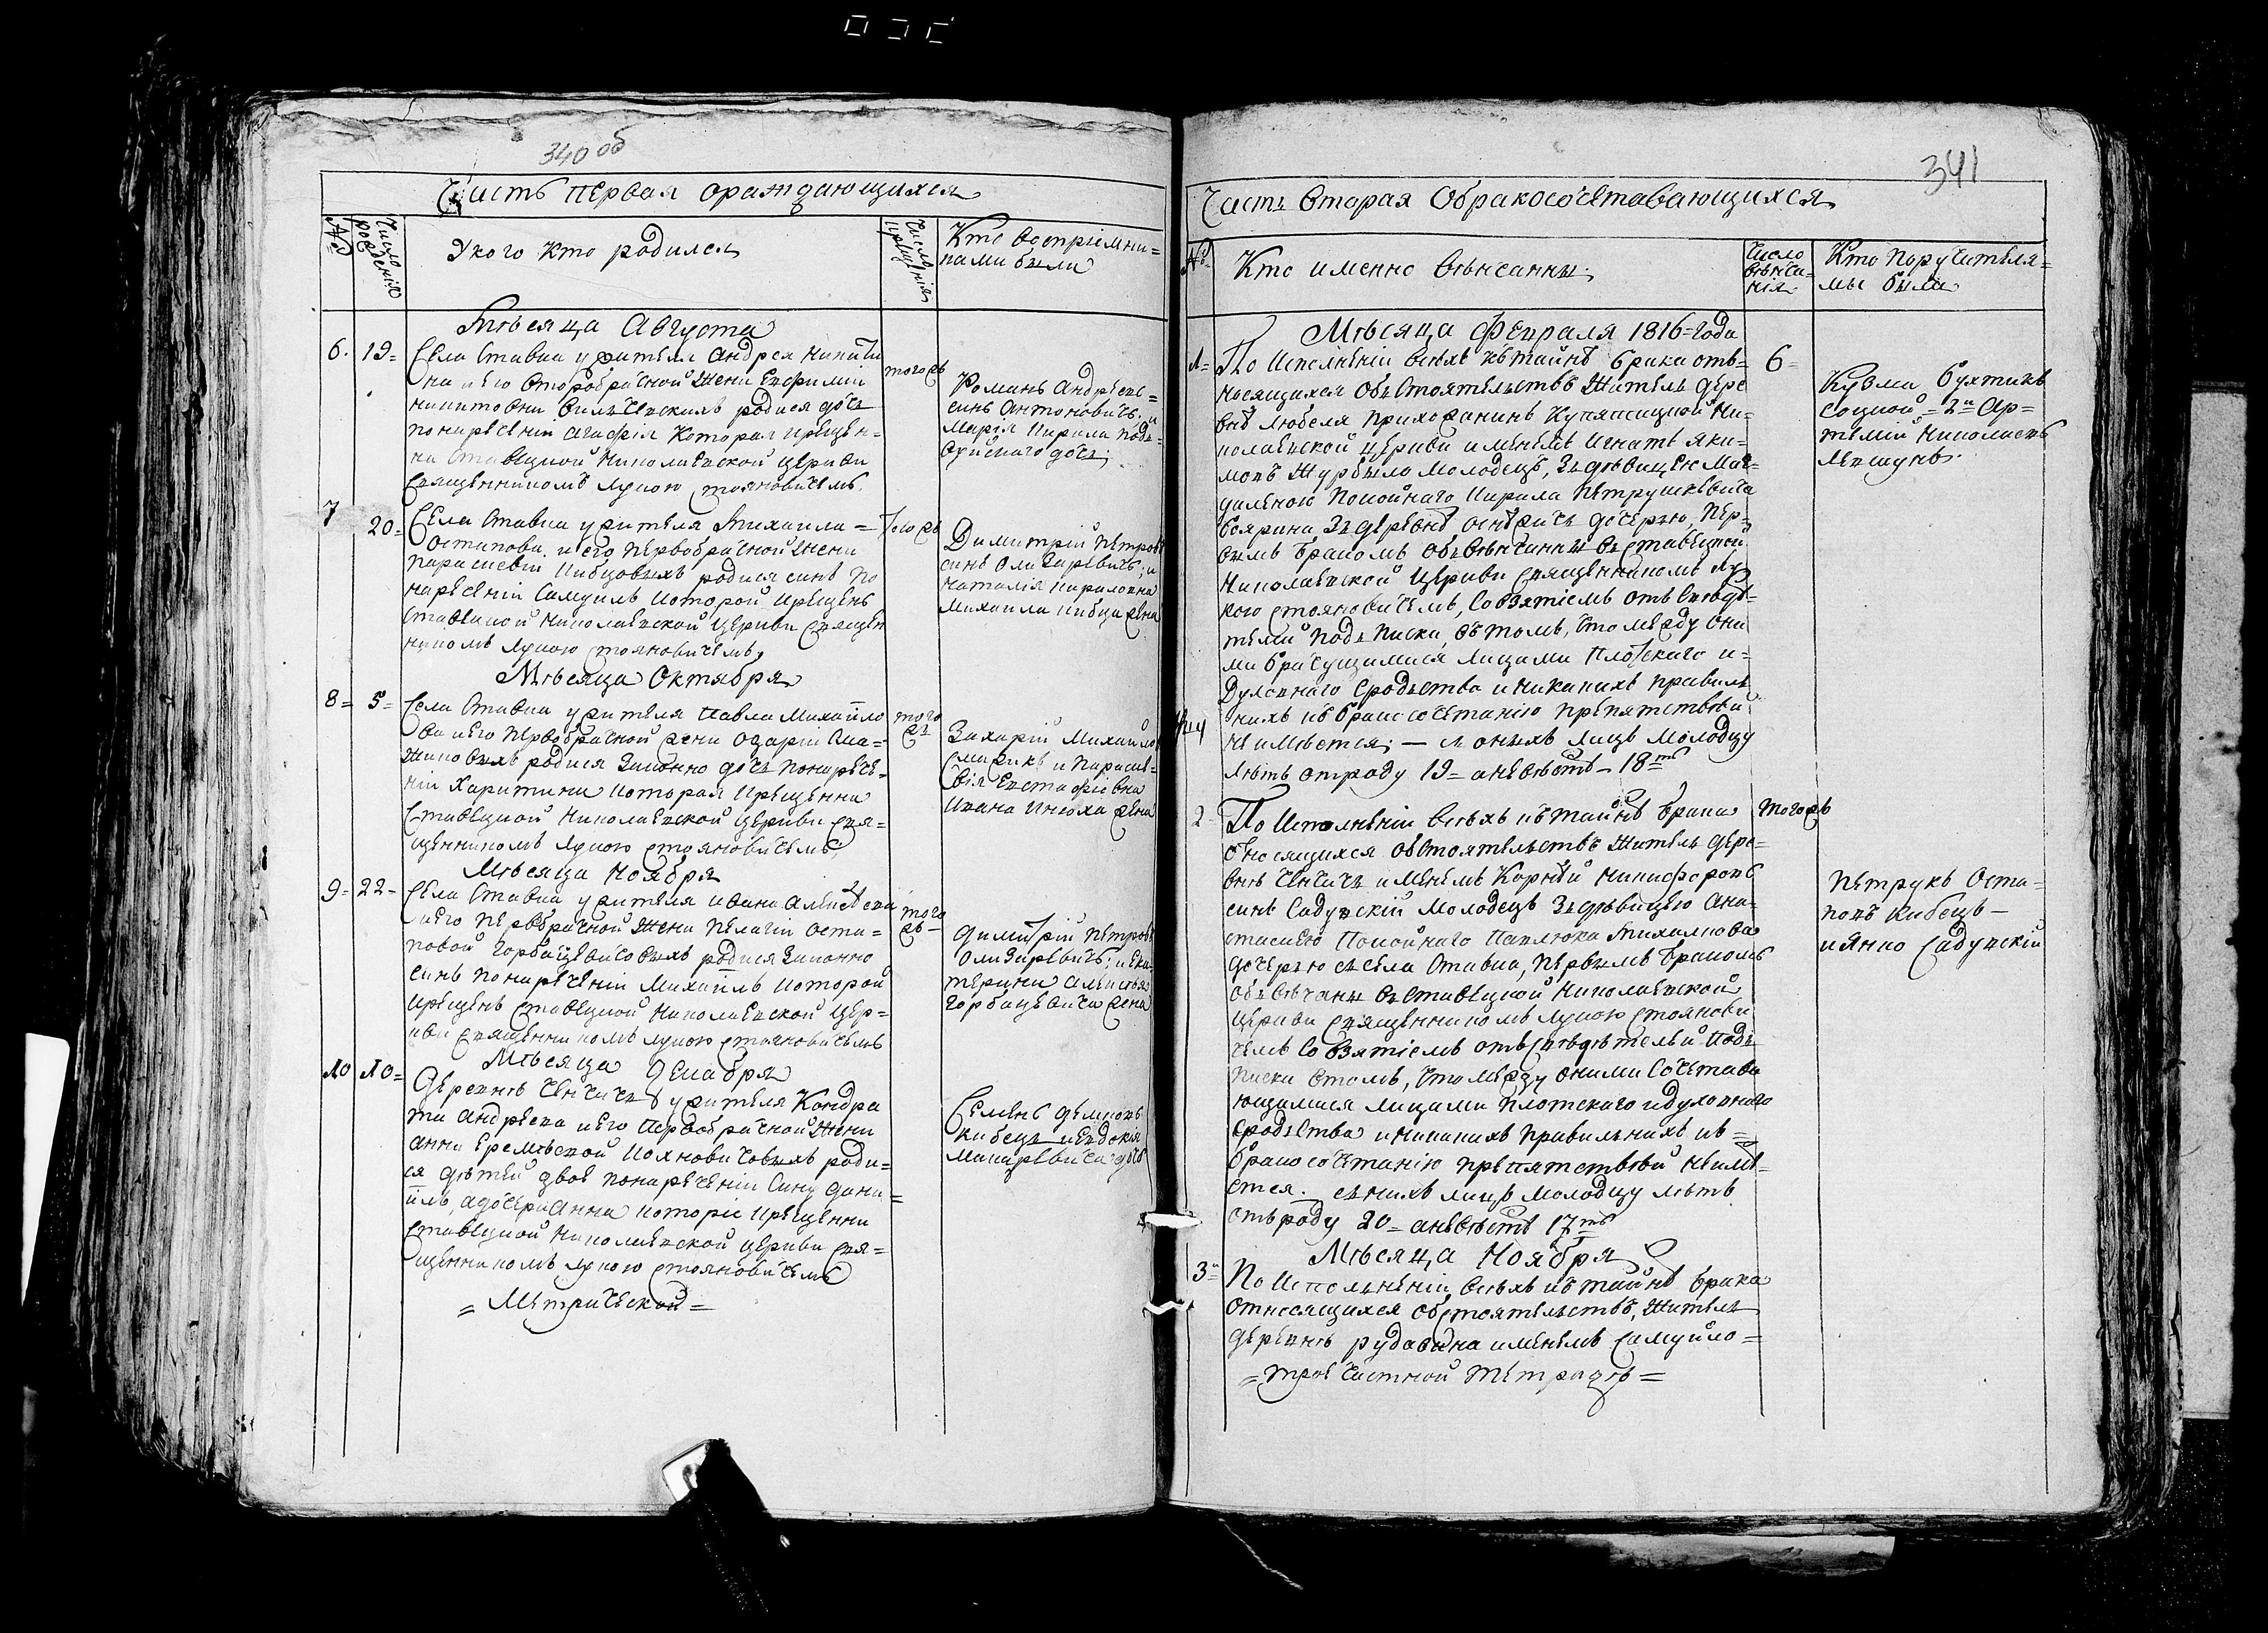 340 об
Часть первая ораждающихся
№
Число рождения
У кого кто родился
Число крещения
Кто восприемни=
ками были
Мѣсяца Августа
6. 19=
Села Ставка у жителя Андрея Никити
на и его второбрачной жены Евфимии
родися дочь
по наречении Агафия которая крещен=
на Ставецкой Николаевской церкви
священником Лукою Стояновичемъ.
того жъ
Романъ Андреевъ=
синъ Антоновичъ, и
Мария Кирила Подъ=
дочь;
7
20=
Села Ставка у жителя Михаила=
Остапова, и его первобрачной жены
Парасκевии Кибцовыхъ родися синъ по
наречении Самуилъ которой крещенъ
Ставецкой Николаевской церкви священ
никомъ Лукою Стояновичемъ,
того жъ
Димитрій Петровъ
синъ Олизаревичъ; и
Наталія Кириловна
Михаила Кибца жена
Мѣсяца Октября
8= 5=
Села Ставка у жителя Павла Михайло
ва и его первобрачной жены
родися законно дочь по нарече=
ніи Харитина которая крещенна
Ставецкой Николаевской церкви свя=
щенникомъ Лукою Стояновичемъ,
того
жъ
Захарій Михайло
и Парасκе=
вія Евстафіевна
Ивана жена
Мѣсяца Ноября
9= 22=
Села Ставка у жителя Ивана Алексѣева
и его первобрачной жены Пелагіи Оста=
повой Горбацевичовыхъ родися законно
синъ по нареченіи Михаилъ которой
крещенъ Ставецкой Николаевской цер=
кви священникомъ Лукою Стояновичемъ
того
жъ=
Димитрій Петровъ
Олизаревичъ; и Ека=
терина Алексѣя
Горбацевича жена
Мѣсяца Декабря
10 10=
Деревнѣ Ченчичъ у жителя Кондра
та Андреева и его первобрачной жены
Анны Еремѣевой родися
дѣтей двое по нареченіи сину Дани=
илъ, а дочери Анна которіе крещенни
Ставецкой Николаевской церкви свя=
щенникомъ Лукою Стояновичемъ
Семенъ Демковъ
Кибецъ и Евдокія
Макаревича дочь
= Метрической =
341
Часть вторая о бракосочетавающихся
№
Кто именно вѣнчанны
Число
вѣнча=
нія
Кто поручителя=
мы были
Мѣсяца Февраля 1816= года
1=
По исполненіи всѣхъ къ тайнѣ брака отъ=
носящихся обьстоятельствъ житель дере
внѣ Любеля прихожанинъ Купятицкой Ни=
колаевской церкви именемъ Игнатъ Яки=
мовъ Журбило молодецъ, зъ дѣвицею Маг=
даленою покойнаго Кирила Петрушкевича
боярина зъ деревнѣ дочерью, пер=
вымъ бракомъ обьвѣнчанны въ Ставецкой
Николаевской церкви священникомъ Лу
кою Стояновичемъ, со взятіемъ отъ свѣдѣ=
телей подъписки, въ томъ, что между они
ми брачущимися лицами плотскаго и=
духовнаго сродъства и никакихъ правиль
нихъ къ бракосочетанію препятствій
не имѣется; — а оныхъ лицъ молодцу
лѣтъ отроду 19= а невѣстѣ= 18 ть
6=
Кузма Бухтикъ
соцкой= 2и Ар=
темій Николаевъ
2
По исполненіи всѣхъ къ тайнѣ брака
относящихся обстоятельствъ житель дере=
внѣ Ченчичъ именемъ Корній Никифоровъ
синъ Садувскій молодецъ зъ дѣвицею Ана=
стасиею покойнаго Павлюка Михалкова
дочерью съ села Ставка, первымъ бракомъ
обьвѣнчаны въ Ставецкой Николаевской
церкви священникомъ Лукою Стоянови
чемъ со взятіемъ отъ свѣдѣтелей подъ
писки въ томъ, что между оними сочетава
ющимися лицами плотскаго и духовнаго
сродъства и никакихъ правильнихъ къ=
бракосочетанію препятствій не имѣ=
ется. съ нихъ лицъ молодцу лѣтъ
отъ роду 20= а невѣстѣ 17 ть
того жъ
Петрукъ Оста=
повъ Кибецъ—
и Янко Садувскій
Мѣсяца Ноября
3=
По исполненіи всѣхъ къ тайнѣ брака
относящихся обстоятельствъ, житель
деревнѣ Рудавина именемъ Самуйло=
= троечастной тетради =